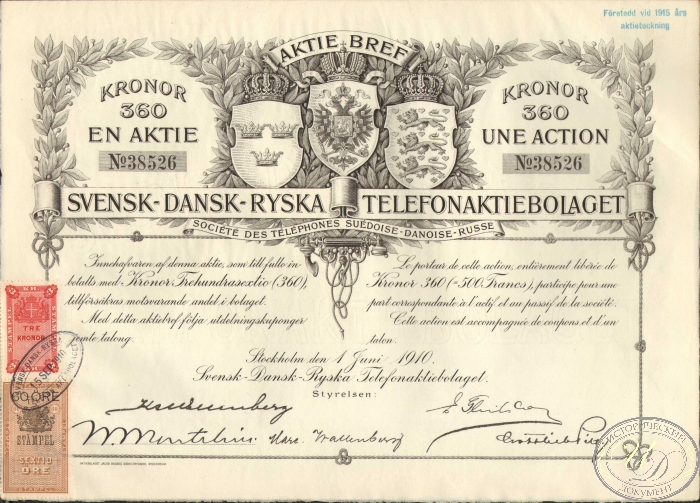 Företedd vid 1915 års
aktieteckning
AKTIE BREF
KRONOR
360
EN AKTIE
No 38526
KRONOR
360
UNE ACTION
No 38526
SVENSK-DANSK-RYSKA TELEFONAKTIEBOLAGET
SOCIÉTÉ DES TÉLÉPHONES SUÉDOISE-DANOISE-RUSSE
Innehafvaren af denna aktie, som till fullo in-
betalts med Kronor Trehundrasextio (360),
tillförsäkras motsvarande andel i bolaget.
Med detta aktiebref följa utdelningskuponger
jemte talong.
Le porteur de cette action, entièrement libérée de
Kronor 360 (=500 Francs), participe pour une
part correspondante à l'actif et au passif de la société.
Cette action est accompagnée de coupons et d'un
talon.
Stockholm den 1 Juni 1910.
Svensk-Dansk-Ryska Telefonaktiebolaget.
Styrelsen:
Marc. Wallenberg
STÄMPEL
TRE
KRONOR
SEP. 1910
60 ÖRE
STÄMPEL
SEXTIO
ÖRE
ИСТОРИЧЕСКИЙ
ДОКУМЕНТ